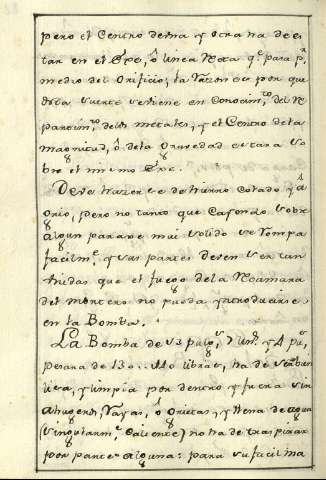 pero el Centro de una y otra ha de es
tar en el Exe, ô linea Recta q.e pasa p.r
medio del Orificio; la razon es por que
esta suerte se tiene en conocim.to del R
partim.to de los metales, y el Centro de la
magnitud, ô de la Gravedad estara so
bre el mismo Exe.
Deve hazerse de hierro colado y
agrio, pero no tanto que Cayendo sobre
algun parage mui solido se rompa
facilm.te y sus partes deven ser un
hidas que el fuego de la Recamara
del mortero no pueda yntroducirse
en la Bomba.
La Bomba de 9 pulg.s 7 lin.s y 4 pu.
pesara de 130 140 libras, ha de ser
lisa, y limpia por dentro y fuera sin
Ahugeros, Rajas, ô Grietas, y llena de agua
(singularm.te Caliente) no ha de traspirar
por parte alguna: para su facil ma